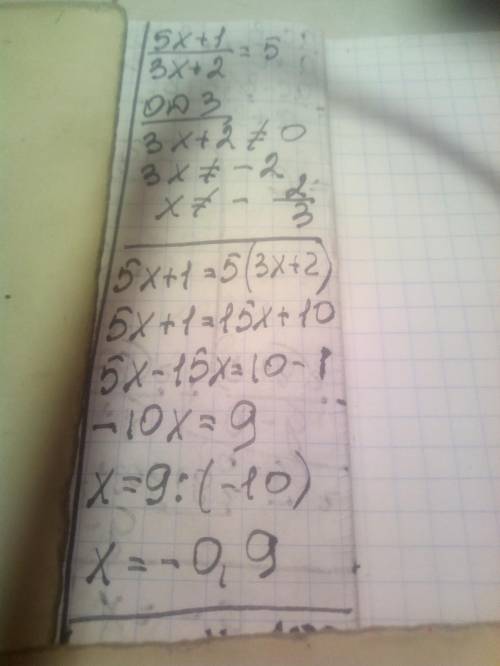 5x+1
3x+2 = 5
ОДЗ
3x+2 ≠ 0
3x ≠ -2
x ≠ - 2/3
5x+1=5(3x+2)
5x+1=15x+10
5x-15x=10-1
-10x=9
x=9:(-10)
x=-0,9